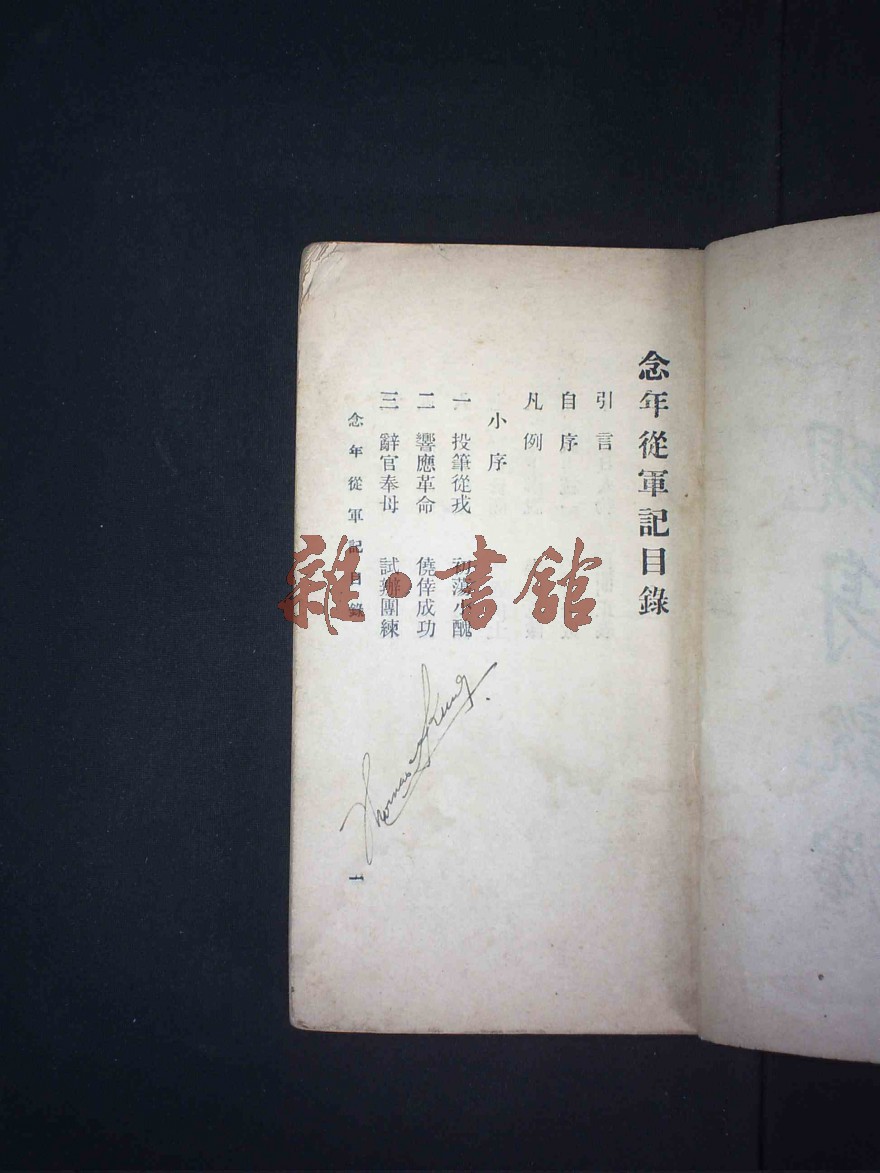 念年從軍記目錄
引言
自序
凡例
小序
一 投筆從戎 初蕩小醜
二 響應革命 僥倖成功
三 辭官奉母 試辦團練
念年從軍記目錄
一
雜·書館